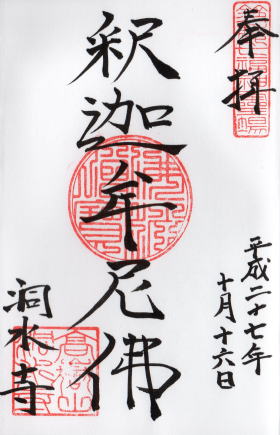 奉拝
平成二十七年
十月十六日
釈迦牟尼佛
洞水寺